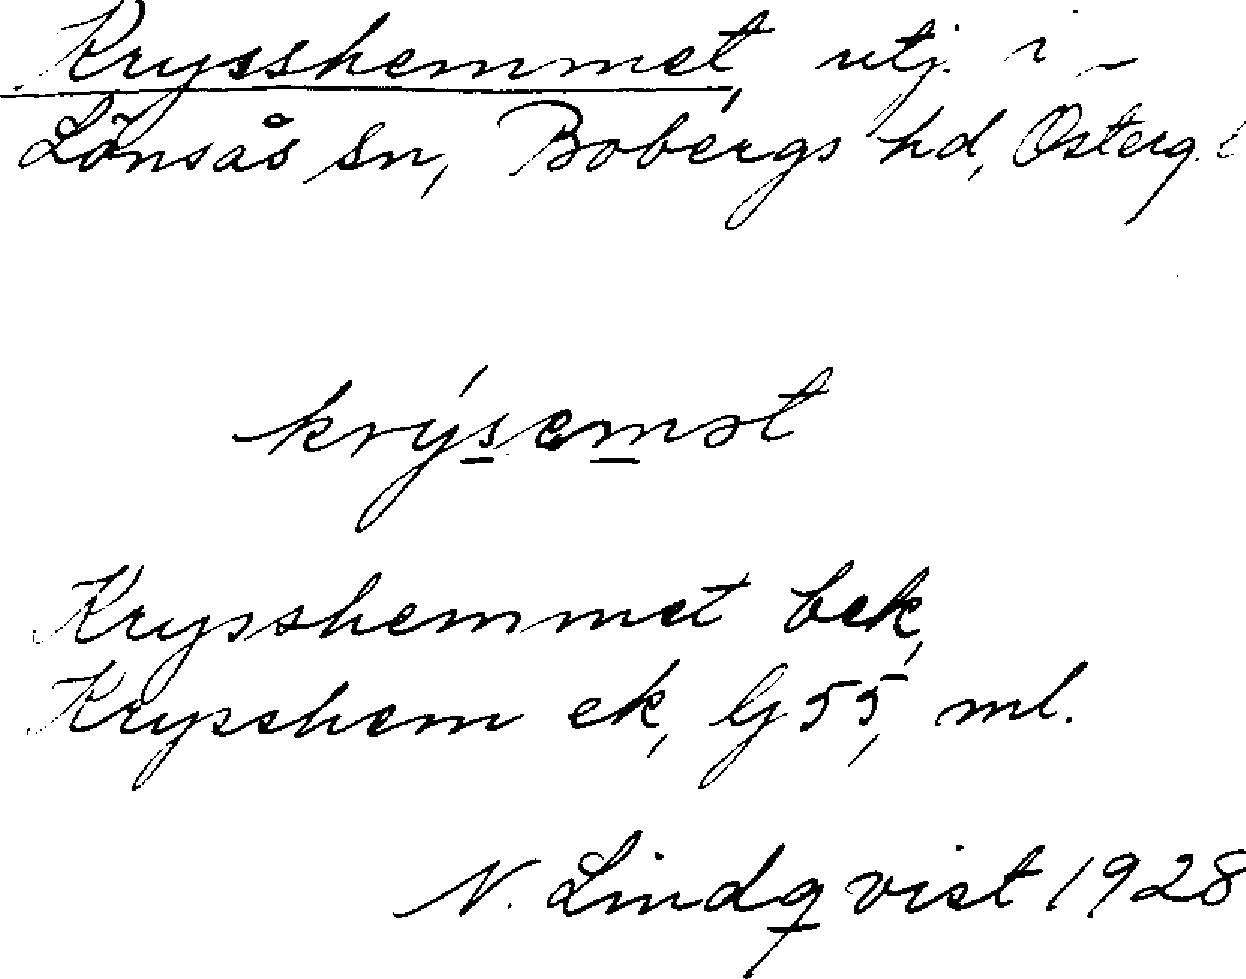 Krysshemmet, utj. i
Lönsås sn, Bobergs hd, Österg.
krýsemət
Krysshemmet bek,
Krysshem ek, Gj 55, ml.
N. Lindqvist 1928